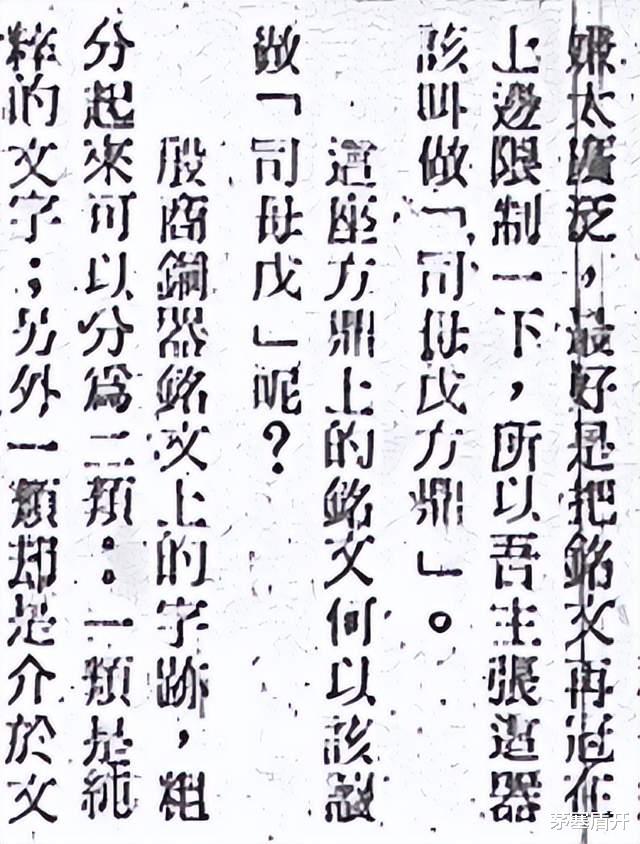 嫌太廣泛，最好是把銘文再冠在
上邊限制一下，所以吾主張這器
該叫做「司母戊方鼎」。
這座方鼎上的銘文何以該讀
做「司母戊」呢？
殷商銅器銘文上的字跡，粗
分起來可以分為二類：一類是純
粹的文字；另外一類却是介於文
茅塞盾开